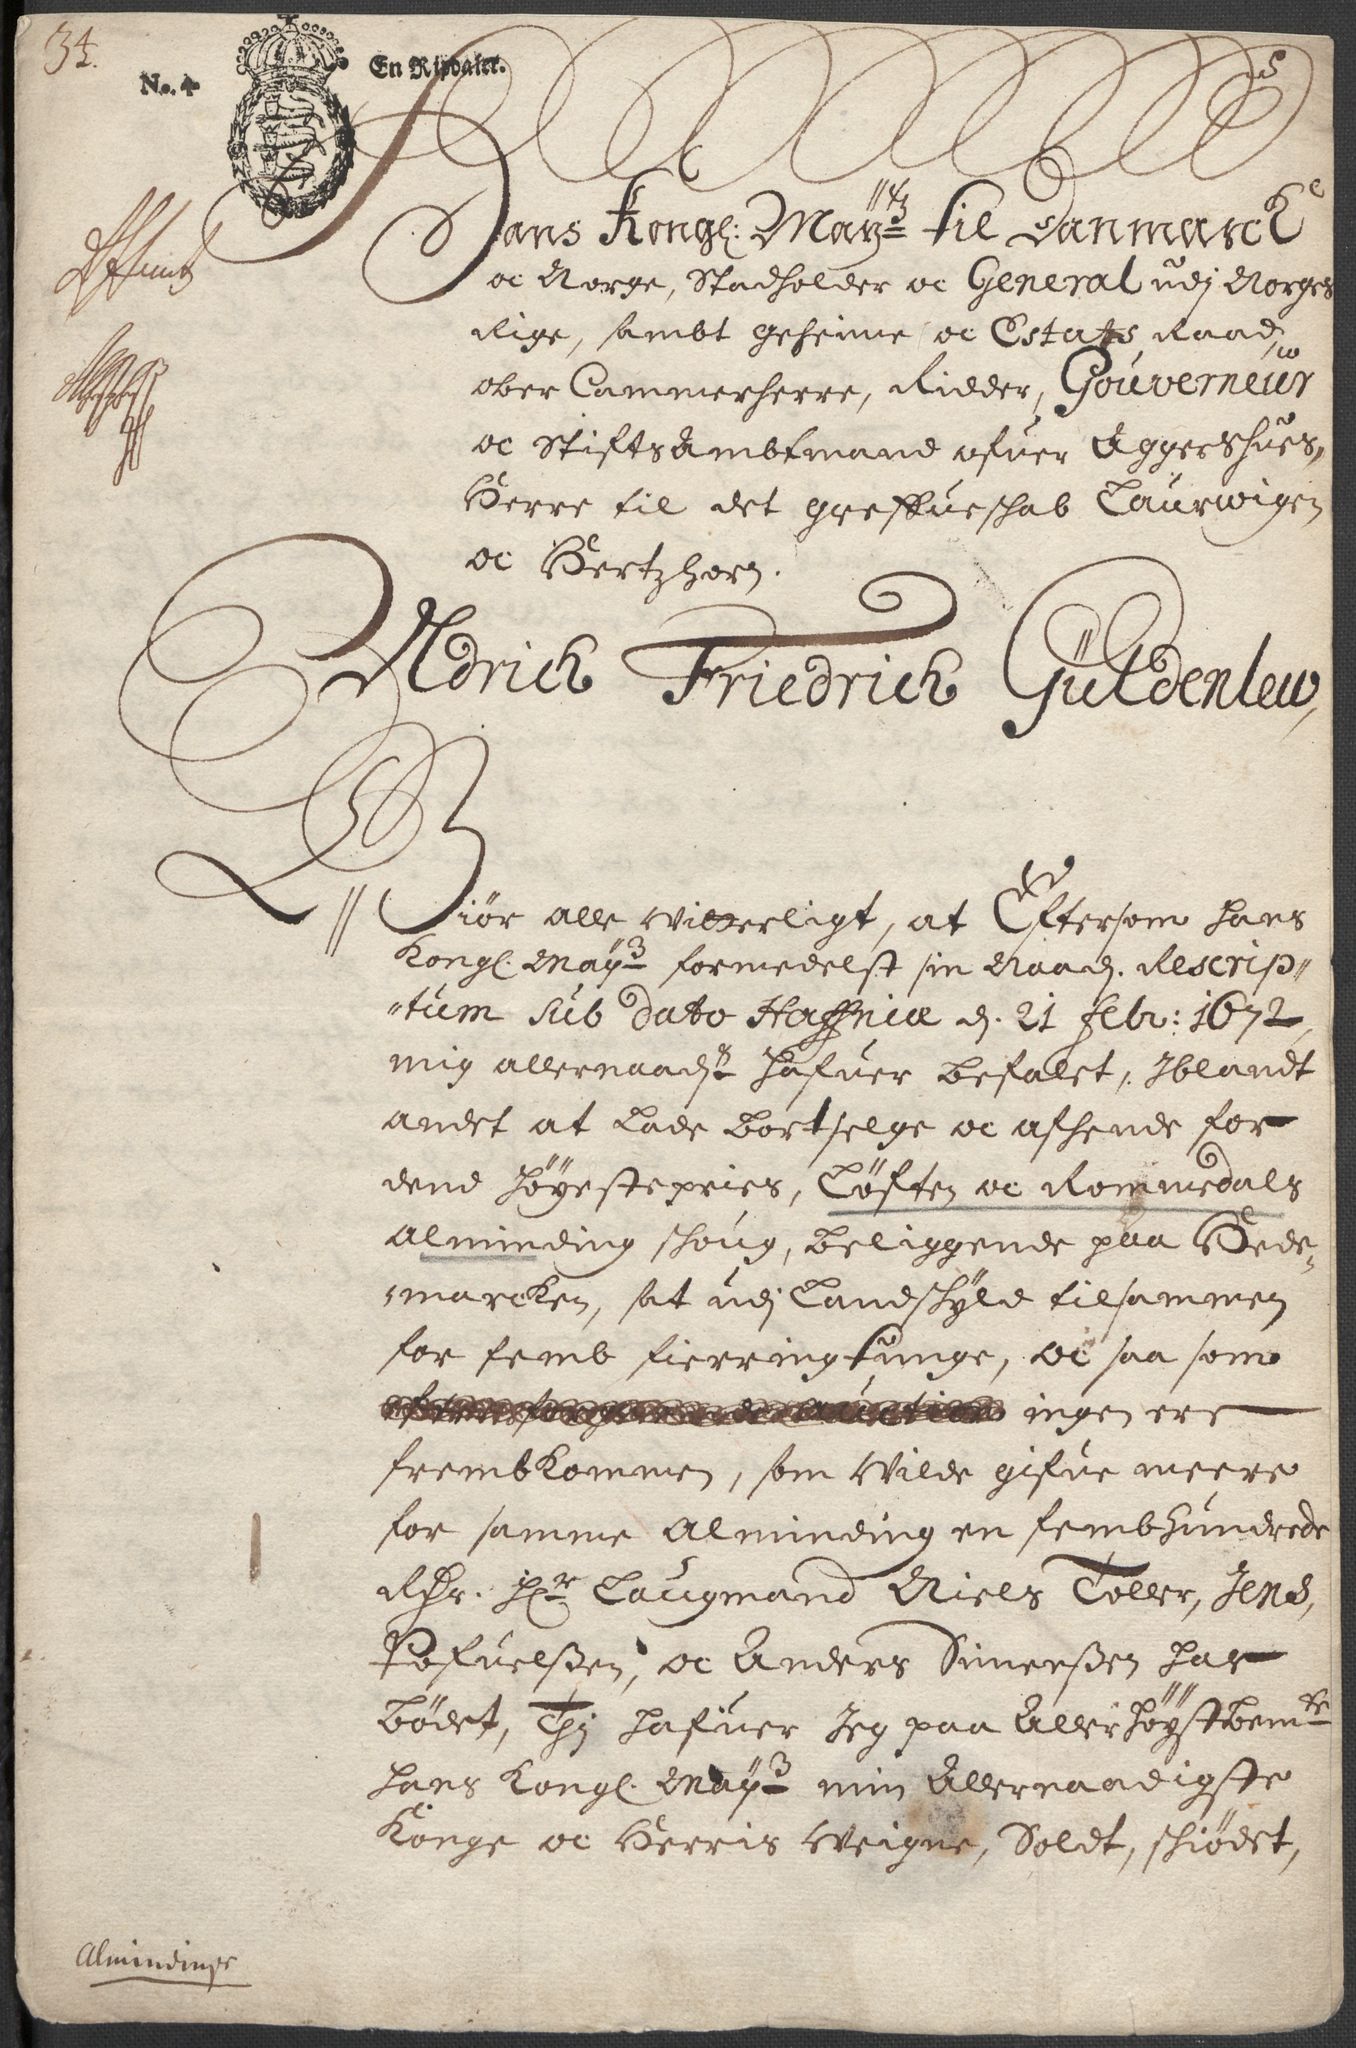 34.
No. 4
En Rixdaler.
5
Hans Kongl: May:tz til Danmarck
oc Norge, Stadholder oc General udj Norges
Rige, sambt geheime oc Estats Raad,
ober Cammerherre, Ridder, Gouverneur
oc Stiftsambtmand ofuer Aggershuus,
Herre til det Greffueschab Laurwigen
oc Hertzhorn.
Uldrich Friedrich Güldenlew,
Giör alle Witterligt, at Eftersom hans
Kongl. May:tz formedelst sin Naad. Rescrip-
tum sub dato Haffniæ d. 21 febr: 1672,
mig allernaad:st hafuer befalet, Iblandt
andet at lade bortselge oc afhende for
dend höyeste pries, Löften oc Rommedals
alminding schoug, beliggende paa Hede-
marcken, sat udj Landschyld tilsammen
for femb fierring tunge, oc saa som
ingen ere
frembkommen, som Wilde gifue meere
for samme Alminding en fembhundrede
Rdr. Hr: Laugmand Niels Toller, Jens
Pofuelsßen, oc Anders Simenßen har
bödet, Thj hafuer Jeg paa Allerhöystbem:te
hans Kongl. May:tz min Allernaadigste
Konge oc Herris Weigne, Soldt, schiödet,
Alminding